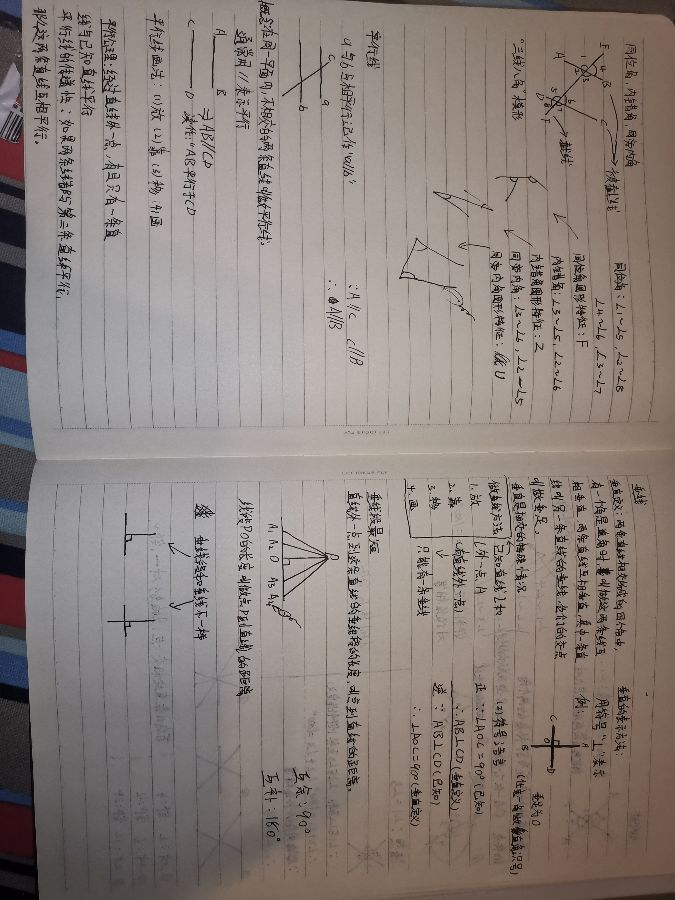 垂线
垂直定义：两条直线相交所成的四个角中，
有一个角是直角时，就叫做这两条线互
相垂直，两条直线互相垂直，其中一条直
线叫另一条直线的垂线，它们的交点
叫做垂足。
垂直是相交的特殊情况
做垂线方法：已知直线L和
L外一点A
1.放
2.靠 (在直线外一点)
3.移
4.画
只能有一条垂线
垂直的表示方法：
用符号"⊥"表示
例：
C
A
B
D
O
垂足为O
(2)符号语言
正：∵∠AOC=90°(已知)
∴AB⊥CD(垂直定义)
逆：∵AB⊥CD(已知)
∴∠AOC=90°(垂直定义)
垂线段最短
直线外一点到这条直线的垂线段的长度，叫点到直线的距离。
P
A1 A2 O A3 A4
线段PO的长度叫做点P到直线l的距离
垂线段和垂线不一样
互余：90°
互补：180°
同位角，内错角，同旁内角
E
A
B
C
D
F
被截直线
截线
"三线八角"小笔形
同位角：∠1~∠5，∠2~∠8
∠4~∠6，∠3~∠7
同位角图形特征：F
内错角：∠3~∠5，∠2~∠6
内错角图形特征：Z
同旁内角：∠3~∠6，∠2~∠5
同旁内角图形特征：U
平行线
a与b互相平行，记作"a//b"
c
a
b
∵A//C C//B
∴A//B
概念：在同一平面内，不相交的两条直线叫做平行线。
通常用 // 表示平行
A B
C D
⇒AB//CD
读作："AB平行于CD
平行线画法：(1)放 (2)靠 (3)移 (4)画
平行公理：经过直线外一点，有且只有一条直
线与已知直线平行
平行线的传递性：如果两条线都与第三条直线平行，
那么这两条直线互相平行。